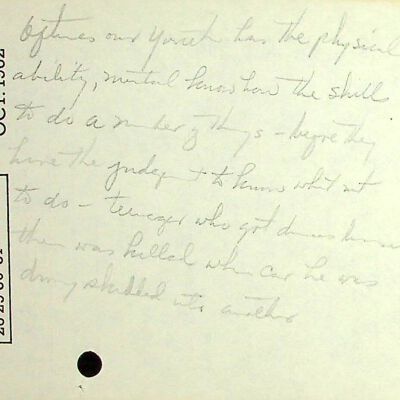 Oftimes our youth has the physical
ability, mental know how the skills
to do a number of things – before they
have the judgment to know what not
to do – teenager who got
then was killed when car he was
driving skidded into another
OCT. 1962